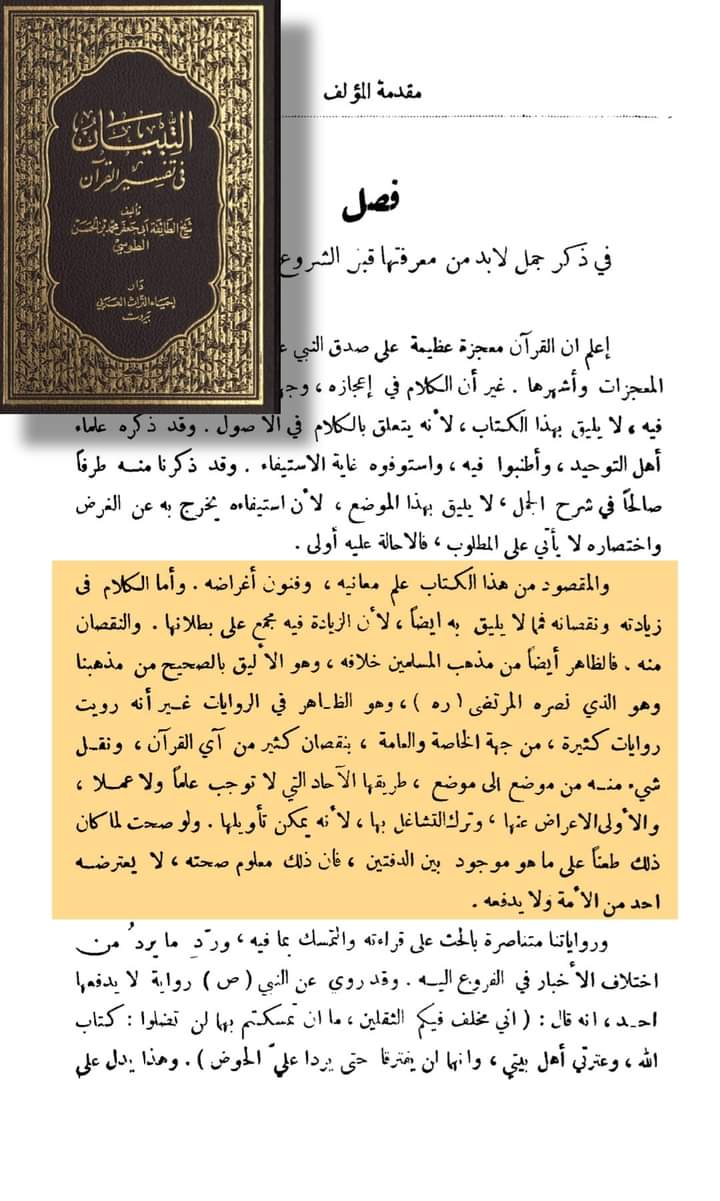 التبيان
في تفسير القرآن
تأليف
شيخ الطائفة أبي جعفر محمد بن الحسن
الطوسي
دار
إحياء التراث العربي
بيروت
مقدمة المؤلف
فصل
في ذكر جمل لابد من معرفتها قبل الشروع
إعلم ان القرآن معجزة عظيمة على صدق النبي
المعجزات وأشهرها . غير أن الكلام في إعجازه ،
فيه ، لا يليق بهذا الكتاب ، لأنه يتعلق بالكلام في الاصول . وقد ذكره علماء
أهل التوحيد ، وأطنبوا فيه ، واستوفوه غاية الاستيفاء . وقد ذكرنا منه طرفاً
صالحاً في شرح الجمل ، لا يليق بهذا الموضع ، لأن استيفاءه يخرج به عن الغرض
واختصاره لا يأتي على المطلوب ، فالاحالة عليه أولى .
والمقصود من هذا الكتاب علم معانيه ، وفنون أغراضه . وأما الكلام في
زيادته ونقصانه فمما لا يليق به ايضاً ، لأن الزيادة فيه مجمع على بطلانها . والنقصان
منه . فالظاهر أيضاً من مذهب المسلمين خلافه ، وهو الأليق بالصحيح من مذهبنا
وهو الذي نصره المرتضى ( ره ) ، وهو الظاهر في الروايات غير أنه رويت
روايات كثيرة ، من جهة الخاصة والعامة ، بنقصان كثير من آي القرآن ، ونقل
شيء منه من موضع الى موضع ، طريقها الآحاد التي لا توجب علماً ولا عملا ،
والأولى الاعراض عنها ، وترك التشاغل بها ، لأنه يمكن تأويلها . ولو صحت لما كان
ذلك طعناً على ما هو موجود بين الدفتين ، فان ذلك معلوم صحته ، لا يعترضه
احد من الأمة ولا يدفعه .
ورواياتنا متناصرة بالحث على قراءته والتمسك بما فيه ، وردّ ما يرد من
اختلاف الأخبار في الفروع اليه . وقد روي عن النبي ( ص ) رواية لا يدفعها
احد ، انه قال : ( اني مخلف فيكم الثقلين ، ما ان تمسكتم بهما لن تضلوا : كتاب
الله ، وعترتي أهل بيتي ، وانهما لن يفترقا حتى يردا عليّ الحوض ) . وهذا يدل على